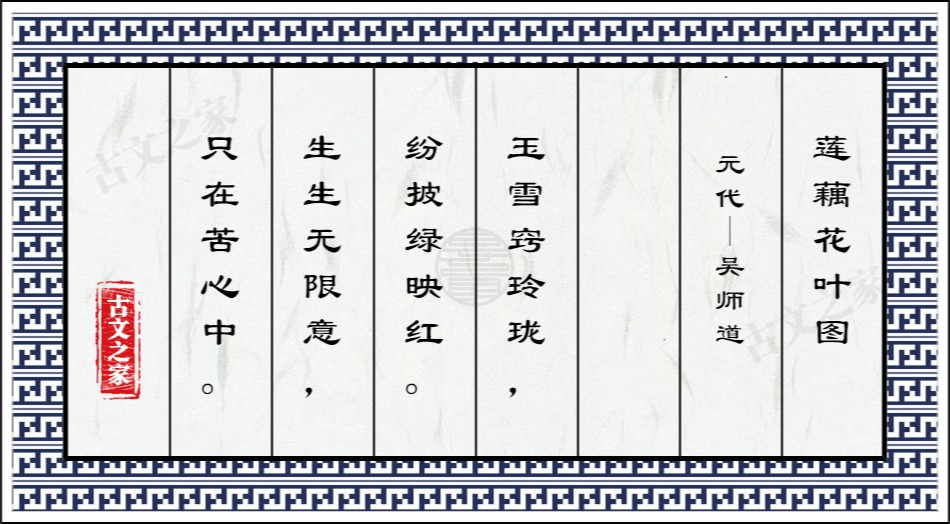 莲藕花叶图
元代—吴师道
玉雪窍玲珑，
纷披绿映红。
生生无限意，
只在苦心中。
古文之家
古文之家
古文之家